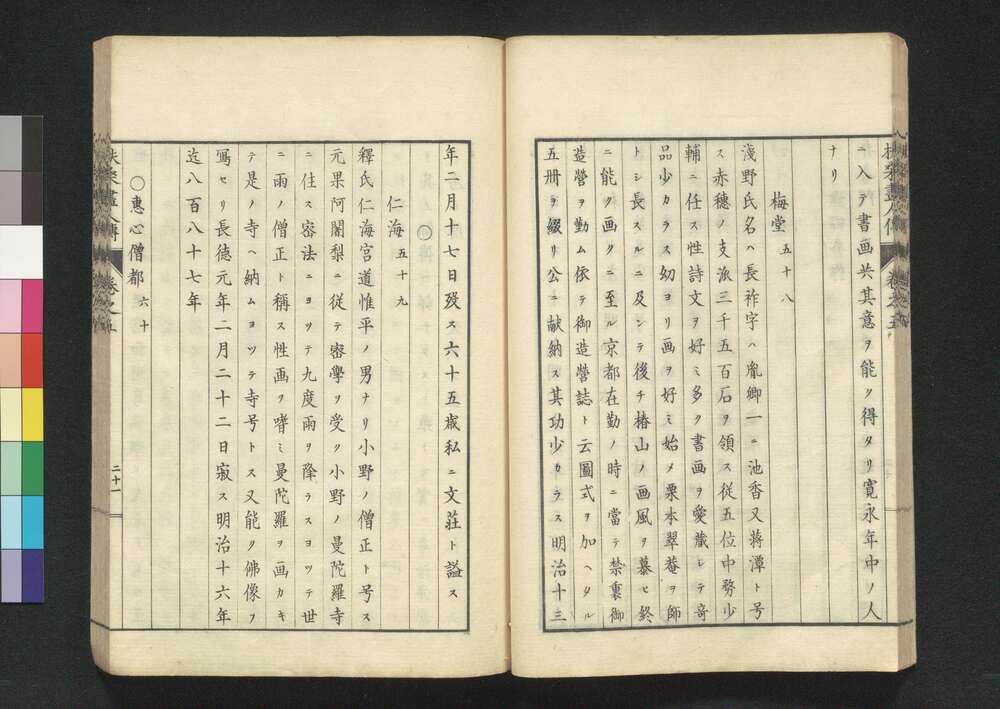 ニ入テ書画共其意ヲ能ク得タリ寛永年中ノ人
ナリ
梅堂 五十八
淺野氏名ハ長祚字ハ胤卿一ニ池香又蒋潭ト号
ス赤穂ノ支流三千五百石ヲ領ス從五位中務少
輔ニ任ス性詩文ヲ好ミ多ク書画ヲ愛藏シテ奇
品少カラス幼ヨリ画ヲ好ミ始メ栗本翠菴ヲ師
トシ長スルニ及ンテ後チ椿山ノ画風ヲ慕セ終
ニ能ク画クニ至ル京都在勤ノ時ニ當テ禁裏御
造營ヲ勤ム依テ御造營誌ト云圖式ヲ加ヘタル
五册ヲ綴リ公ニ献納ス其功少カラス明治十三
年二月十七日歿ス六十五歳私ニ文莊ト謚ス
〇仁海 五十九
釋氏仁海宮道惟平ノ男ナリ小野ノ僧正ト号ス
元果阿闍梨ニ従テ密學ヲ受ク小野ノ曼陀羅寺
ニ住ス密法ニヨツテ九度雨ヲ降ラスヨツテ世
ニ雨ノ僧正ト稱ス性画ヲ嗜ミ曼陀羅ヲ画カキ
テ是ノ寺ヘ納ムヨツテ寺号トス又能ク佛像ヲ
寫セリ長徳元年二月二十二日寂ス明治十六年
迄八百八十七年
〇惠心僧都 六十
扶桑畫人傳 卷之五
二十一